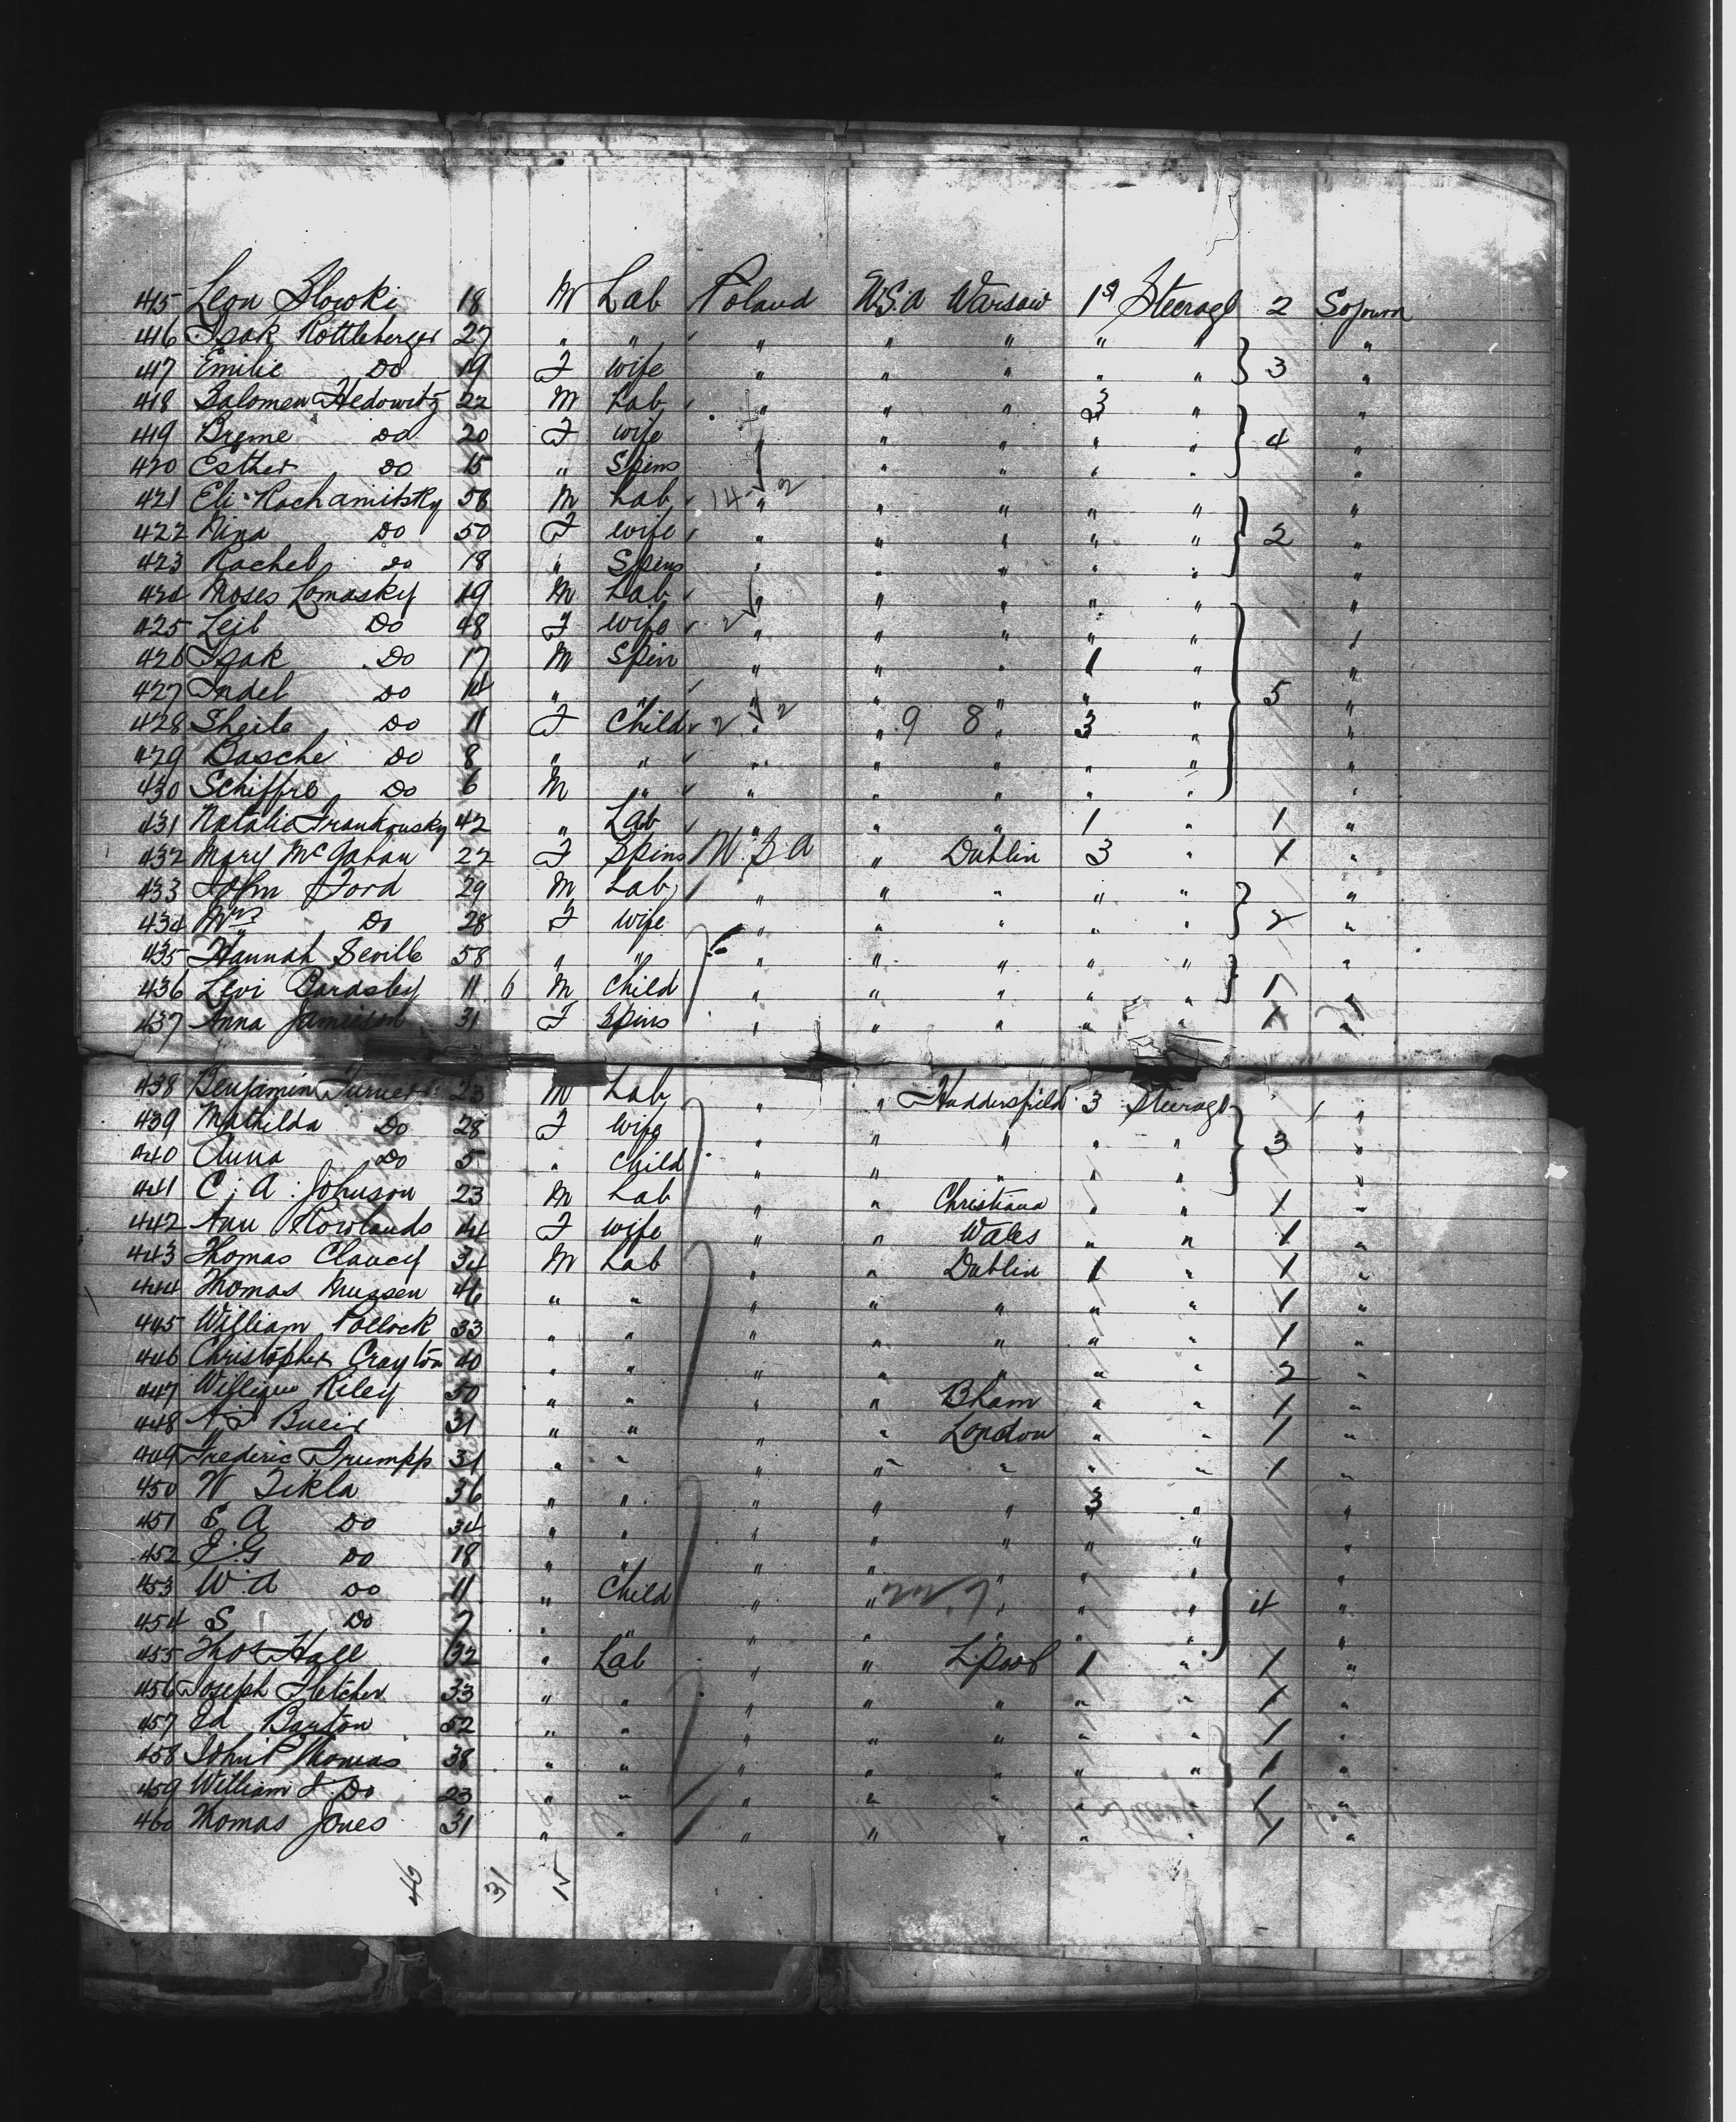 415 Leon Slowki 18 M Lab Poland U.S.A Warsaw 1st Steerage 2 Sojourn
416 Isak Rottleberger 27 " " " " " " " "
417 Emilie Do 19 F wife " " " " " 3 "
418 Salomen Hedowitz 22 M Lab " " " 3 " "
419 Breme Do 20 F wife " " " " " 4 "
420 Esther Do 15 " Spins " " " " " "
421 Eli Rachamitsky 58 M Lab 14 2 " " " " " "
422 Nina Do 50 F wife " " " " " 2 "
423 Rachel Do 18 " Spins " " " " " "
424 Moses Lomasky 49 M Lab " " " " " "
425 Lejb Do 48 F wife 2 " " " " " "
426 Isak Do 17 M Spin " " " 1 " "
427 Indel Do 14 " " " " " " " 5 "
428 Sheile Do 11 F Child 2 2 " " 9 8 " 3 " "
429 Basche Do 8 " " " " " " " "
430 Schiffre Do 6 M " " " " " " "
431 Natalie Frankousky 42 " Lab " " " 1 " 1 "
432 Mary McGahan 22 F Spins U.S.A " Dublin 3 " 1 "
433 John Ford 29 M Lab " " " " " "
434 Mrs Do 28 F wife " " " " " 2 "
435 Hannah Seville 58 " " " " " " " "
436 Levi Bardsley 11 6 M Child " " " " " 1 "
437 Anna Jamieson 31 F Spins " " " " " 1 "
438 Benjamin Turner 23 M Lab " " Huddersfield 3 Steerage "
439 Mathilda Do 28 F wife " " " " " 3 "
440 Anna Do 5 " Child " " " " " "
441 C. A. Johnson 23 M Lab " " Christiana " " 1 "
442 Ann Rowlands 44 F wife " " Wales " " 1 "
443 Thomas Clancy 34 M Lab " " Dublin 1 " 1 "
444 Thomas Mussen 46 " " " " " " " 1 "
445 William Pollock 33 " " " " " " " 1 "
446 Christopher Crayton 40 " " " " " " " 2 "
447 William Riley 50 " " " " Bham " " 1 "
448 31 " " " " London " " 1 "
449 Frederic Trumpp 31 " " " " " " " 1 "
450 W Tekla 36 " " " " " 3 " "
451 S A Do 34 " " " " " " " "
452 E. G Do 18 " " " " " " " "
453 W. A Do 11 " Child " " " " " 4 "
454 S Do 7 " " " " " " " "
455 Thos Hall 32 " Lab " " Lpool 1 " 1 "
456 Joseph Fletcher 33 " " " " " " " 1 "
457 Ed Barton 52 " " " " " " " 1 "
458 John P Thomas 38 " " " " " " " 1 "
459 William J. Do 23 " " " " " " " 1 "
460 Thomas Jones 31 " " " " " " " 1 "
46 31 12